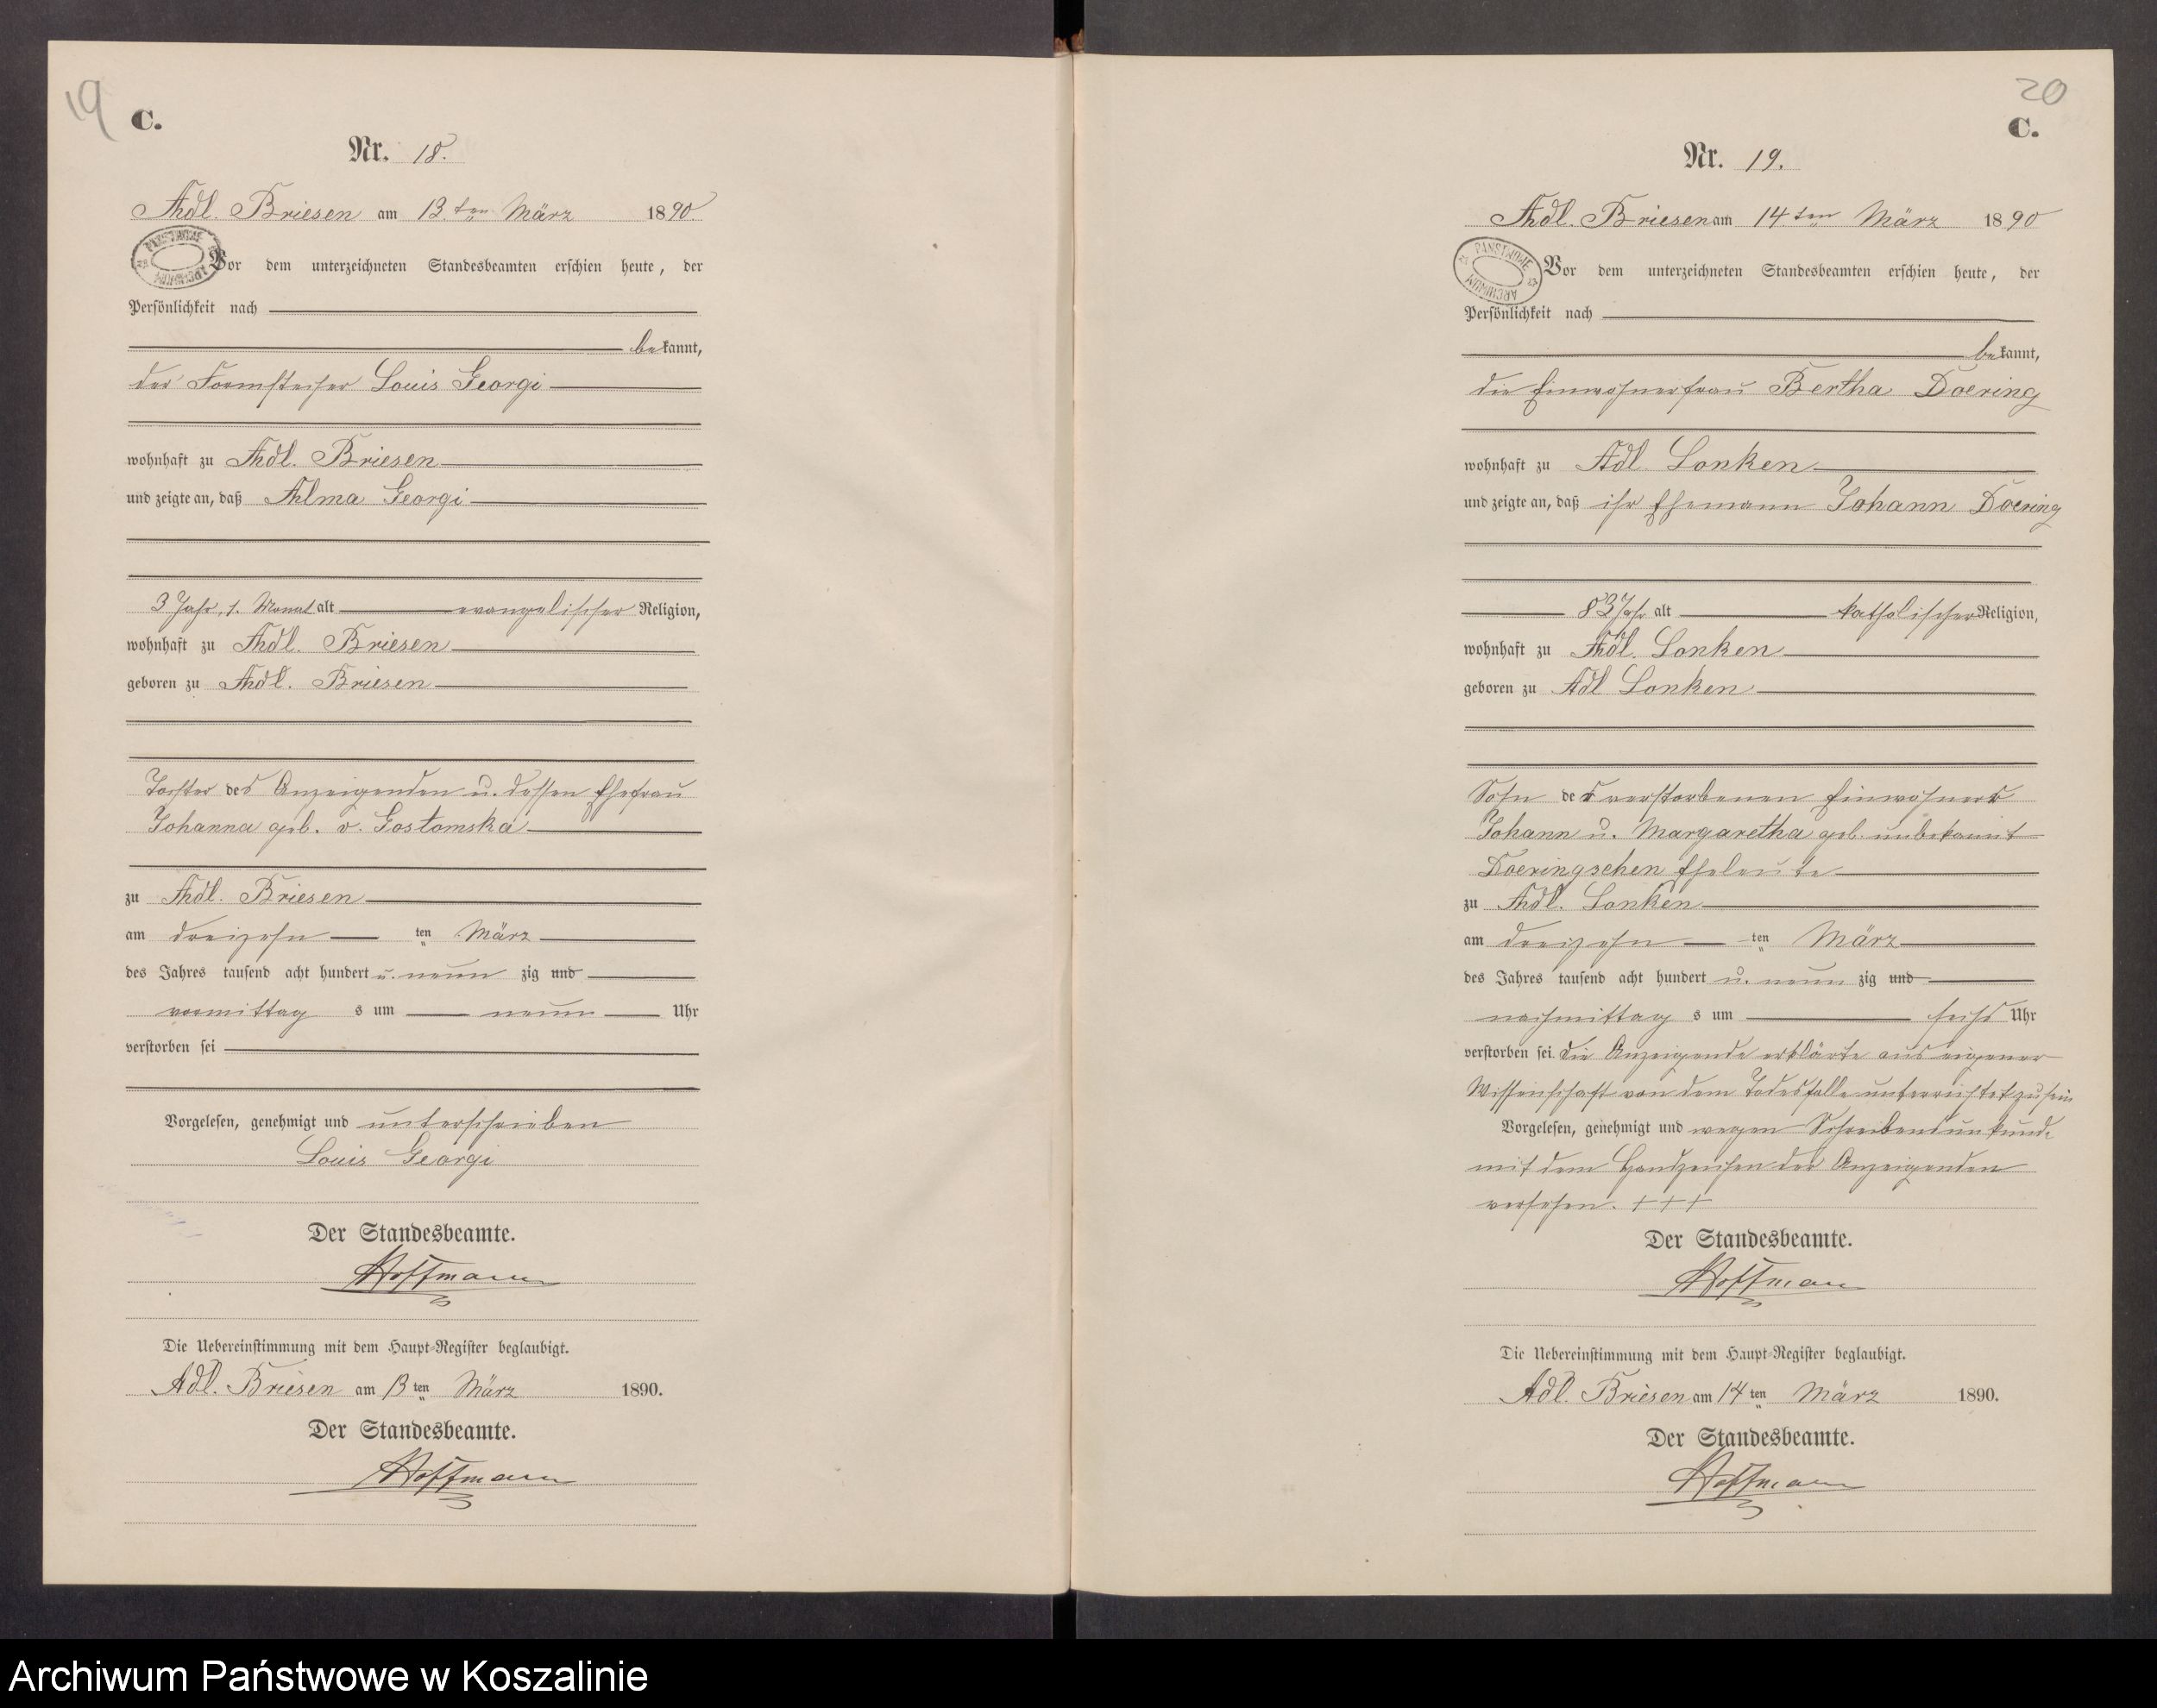 19
C.
Nr. 18.
Adl. Briesen am 13.ten März 1890.
PANSTWOWE ARCHIWUM
Vor dem unterzeichneten Standesbeamten erschien heute, der
Persönlichkeit nach
bekannt,
der Louis Georgi
wohnhaft zu Adl. Briesen
und zeigte an, daß Alma Georgi
3 Jahr, 1. Monat alt evangelischer Religion,
wohnhaft zu Adl. Briesen
geboren zu Adl. Briesen
Tochter des Anzeigenden u. dessen Ehefrau
Johanna geb. v. Gostomska
zu Adl. Briesen
am dreizehn ten März
des Jahres tausend acht hundert u. neun zig und
vormittag s um neun Uhr
verstorben sei
Vorgelesen, genehmigt und unterschrieben
Louis Georgi
Der Standesbeamte.
Hoffmann
Die Uebereinstimmung mit dem Haupt-Register beglaubigt.
Adl. Briesen am 13 ten März 1890.
Der Standesbeamte.
Hoffmann
20
C.
Nr. 19.
Adl. Briesen am 14.ten März 1890
PANSTWOWE ARCHIWUM
Vor dem unterzeichneten Standesbeamten erschien heute, der
Persönlichkeit nach
bekannt,
die Einwohnerfrau Bertha Doering
wohnhaft zu Adl. Lonken
und zeigte an, daß ihr Ehemann Johann Doering
83 Jahr alt katholischer Religion,
wohnhaft zu Adl. Lonken
geboren zu Adl Lonken
Sohn der verstorbenen Einwohner
Johann u. Margaretha geb. unbekannt
Doeringschen Eheleute
zu Adl. Lonken
am dreizehn ten März
des Jahres tausend acht hundert u. neun zig und
nachmittag s um sechs Uhr
verstorben sei. Die Anzeigende erklärte aus eigener
Wissenschaft von dem Todesfalle unterrichtet zu sein
Vorgelesen, genehmigt und wegen Schreibensunkunde
mit dem Handzeichen der Anzeigenden
versehen. + + +
Der Standesbeamte.
Hoffmann
Die Uebereinstimmung mit dem Haupt-Register beglaubigt.
Adl. Briesen am 14 ten März 1890.
Der Standesbeamte.
Hoffmann
Archiwum Państwowe w Koszalinie